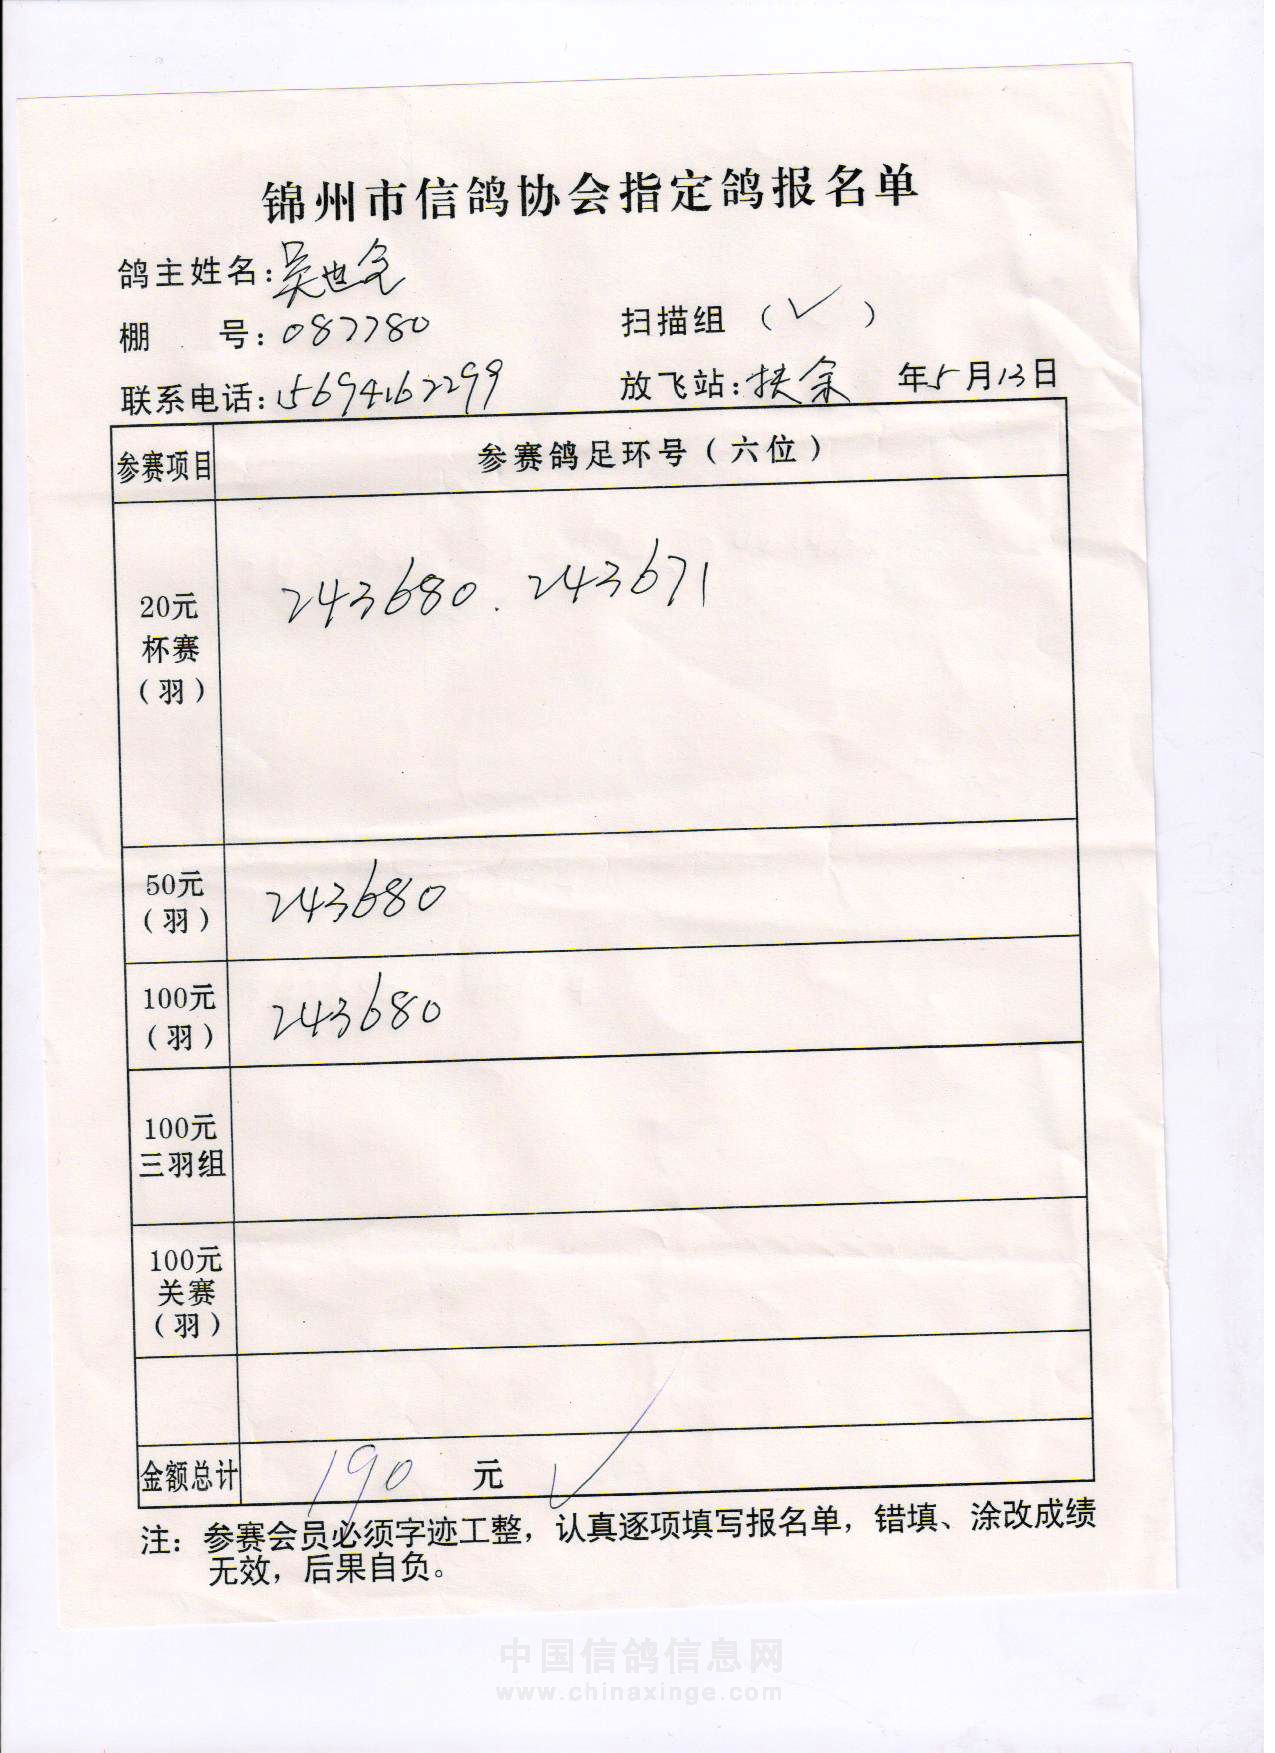 锦州市信鸽协会指定鸽报名单
鸽主姓名:吴世全
棚 号:087780 扫描组 (✓)
联系电话:15694162299 放飞站:扶余 年5月13日
参赛项目 参赛鸽足环号(六位)
20元
杯赛
(羽)
243680. 243671
50元
(羽)
243680
100元
(羽)
243680
100元
三羽组
100元
关赛
(羽)
金额总计 190 元 ✓
注: 参赛会员必须字迹工整,认真逐项填写报名单,错填、涂改成绩
无效,后果自负。
中国信鸽信息网
www.chinaxinge.com